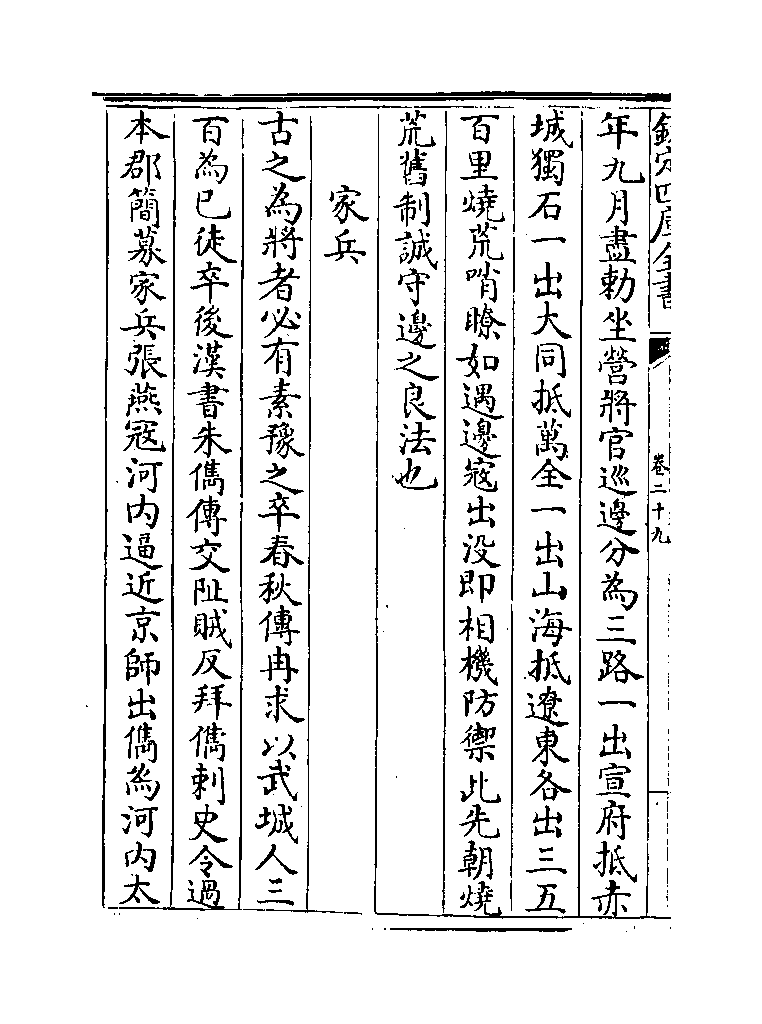 欽定四庫全書
卷二十九
年九月盡勅坐營將官巡邊分為三路一出宣府抵赤
城獨石一出大同抵萬全一出山海抵遼東各出三五
百里燒荒哨瞭如遇邊寇出没即相機防禦此先朝燒
荒舊制誠守邊之良法也
家兵
古之為將者必有素豫之卒春秋傳冉求以武城人三
百為已徒卒後漢書朱儁傳交阯賊反拜儁刺史令過
本郡簡募家兵張燕寇河内逼近京師出儁為河内太